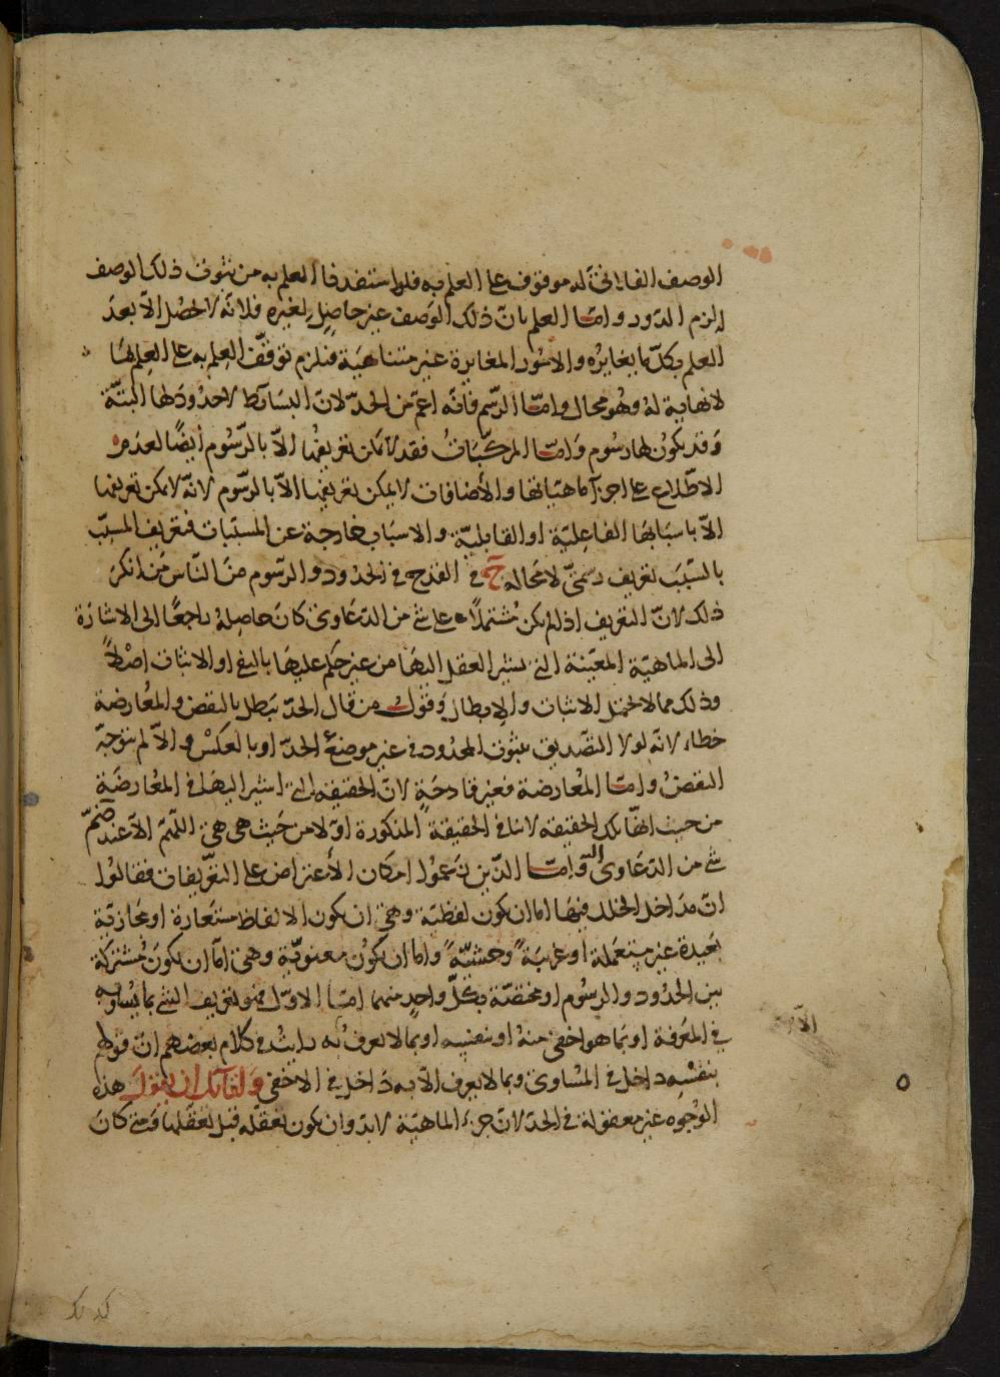 الوصف الفلانى له موقوف على العلم به فلو استفدنا العلم به من ثبوت ذلك الوصف
لزم الدور واما العلم بان ذلك الوصف غير حاصل لغيره فلانه لا يحصل الا بعد
العلم بكل ما يغايره والامور المغايرة غير متناهية فيلزم توقف العلم به على العلم بما
لا نهاية له وهو محال واما الرسم فانه اعم من الحد لان البسائط لا حدود لها البتة
وقد يكون لها رسوم واما المركبات فقد لا يمكن تعريفها الا بالرسوم ايضا لعدم
الاطلاع على اجزآء ماهياتها والاضافات لا يمكن تعريفها الا بالرسوم لانه لا يمكن تعريفها
الا باسبابها الفاعلية او القابلية والاسباب خارجة عن المسببات فتعريف المسبب
بالسبب تعريف رسمى لا محالة ح فى القدح فى الحدود والرسوم من الناس من انكر
ذلك لان التعريف اذا لم يكن مشتملا على شئ من الدعاوى كان حاصله راجعا الى الاشارة
الى الماهية المعينة التى يشير العقل اليها من غير حكم عليها بالنفى او الاثبات اصلا
وذلك مما لا يحتمل الاثبات والابطال وقول من قال الحد يبطل بالنقض والمعارضة
خطاء لانه لولا التصديق بثبوت المحدود فى غير موضع الحد او بالعكس والا لم يتوجه
النقض واما المعارضة فغير قادحة لان الحقيقة التى اشير اليها فى المعارضة
من حيث انها تلك الحقيقة لا تنافى الحقيقة المذكورة اولا من حيث هى هى اللهم الا عند ضم
شئ من الدعاوى اليه واما الذين زعموا امكان الاعتراض على التعريفات فقالوا
ان مداخل الخلل فيها اما ان يكون لفظية وهى ان يكون الالفاظ مستعارة او مجازية
بعيدة غير مستعملة او غريبة وحشية واما ان يكون معنوية وهى اما ان يكون مشتركة
بين الحدود والرسوم او مختصة بكل واحد منهما اما الاول فهو تعريف الشئ بما يساويه
فى المعرفة او بما هو اخفى منه او بنفسه او بما لا يعرف الا به رايت فى كلام بعضهم ان قولهم
الا
بنفسه داخل فى المساوى وبما لا يعرف الا به داخل فى الاخفى ولقائل ان يقول هذه
الوجوه غير معقولة فى الحد لان جزء الماهية لا بد وان يكون تعقله قبل تعقلها فمتى كان